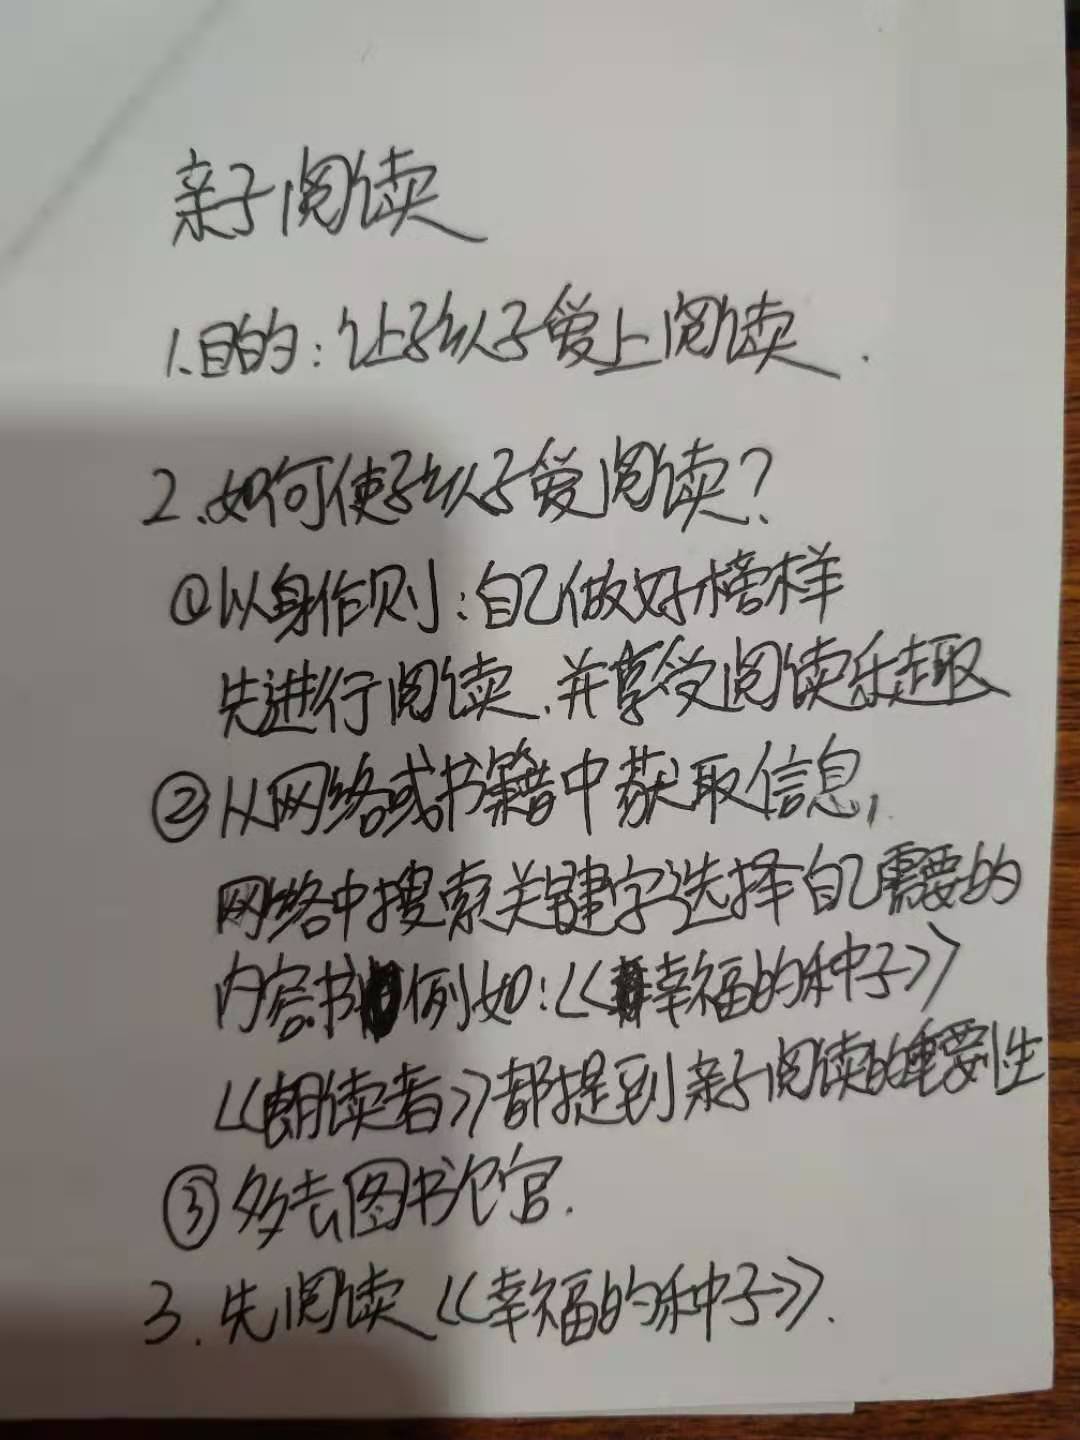 亲子阅读
1.目的：让孩子爱上阅读.
2.如何使孩子爱阅读？
①以身作则：自己做好榜样
先进行阅读.并享受阅读乐趣
②从网络或书籍中获取信息,
网络中搜索关键字选择自己需要的
内容书例如：《幸福的种子》
《朗读者》都提到亲子阅读的重要性
③多去图书馆.
3.先阅读《幸福的种子》.